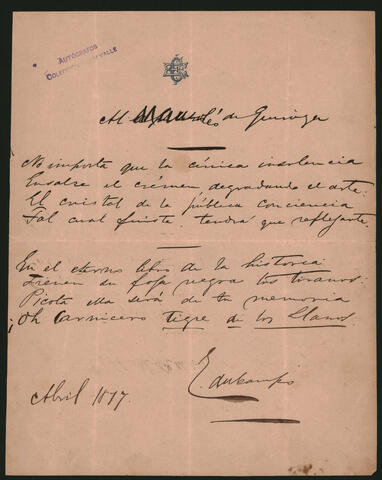 AUTÓGRAFOS
Al de Quiroga
No importa que la cínica insolencia
Ensalce el crímen degradando el arte:
El cristal de la pública conciencia
Tal cual fuiste, tendrá que reflejarte.
En el eterno libro de la historia
Tienen su foja negra los tiranos.
Picota ella será de tu memoria
¡Oh Carnicero Tigre de los Llanos!
Abril 1897.